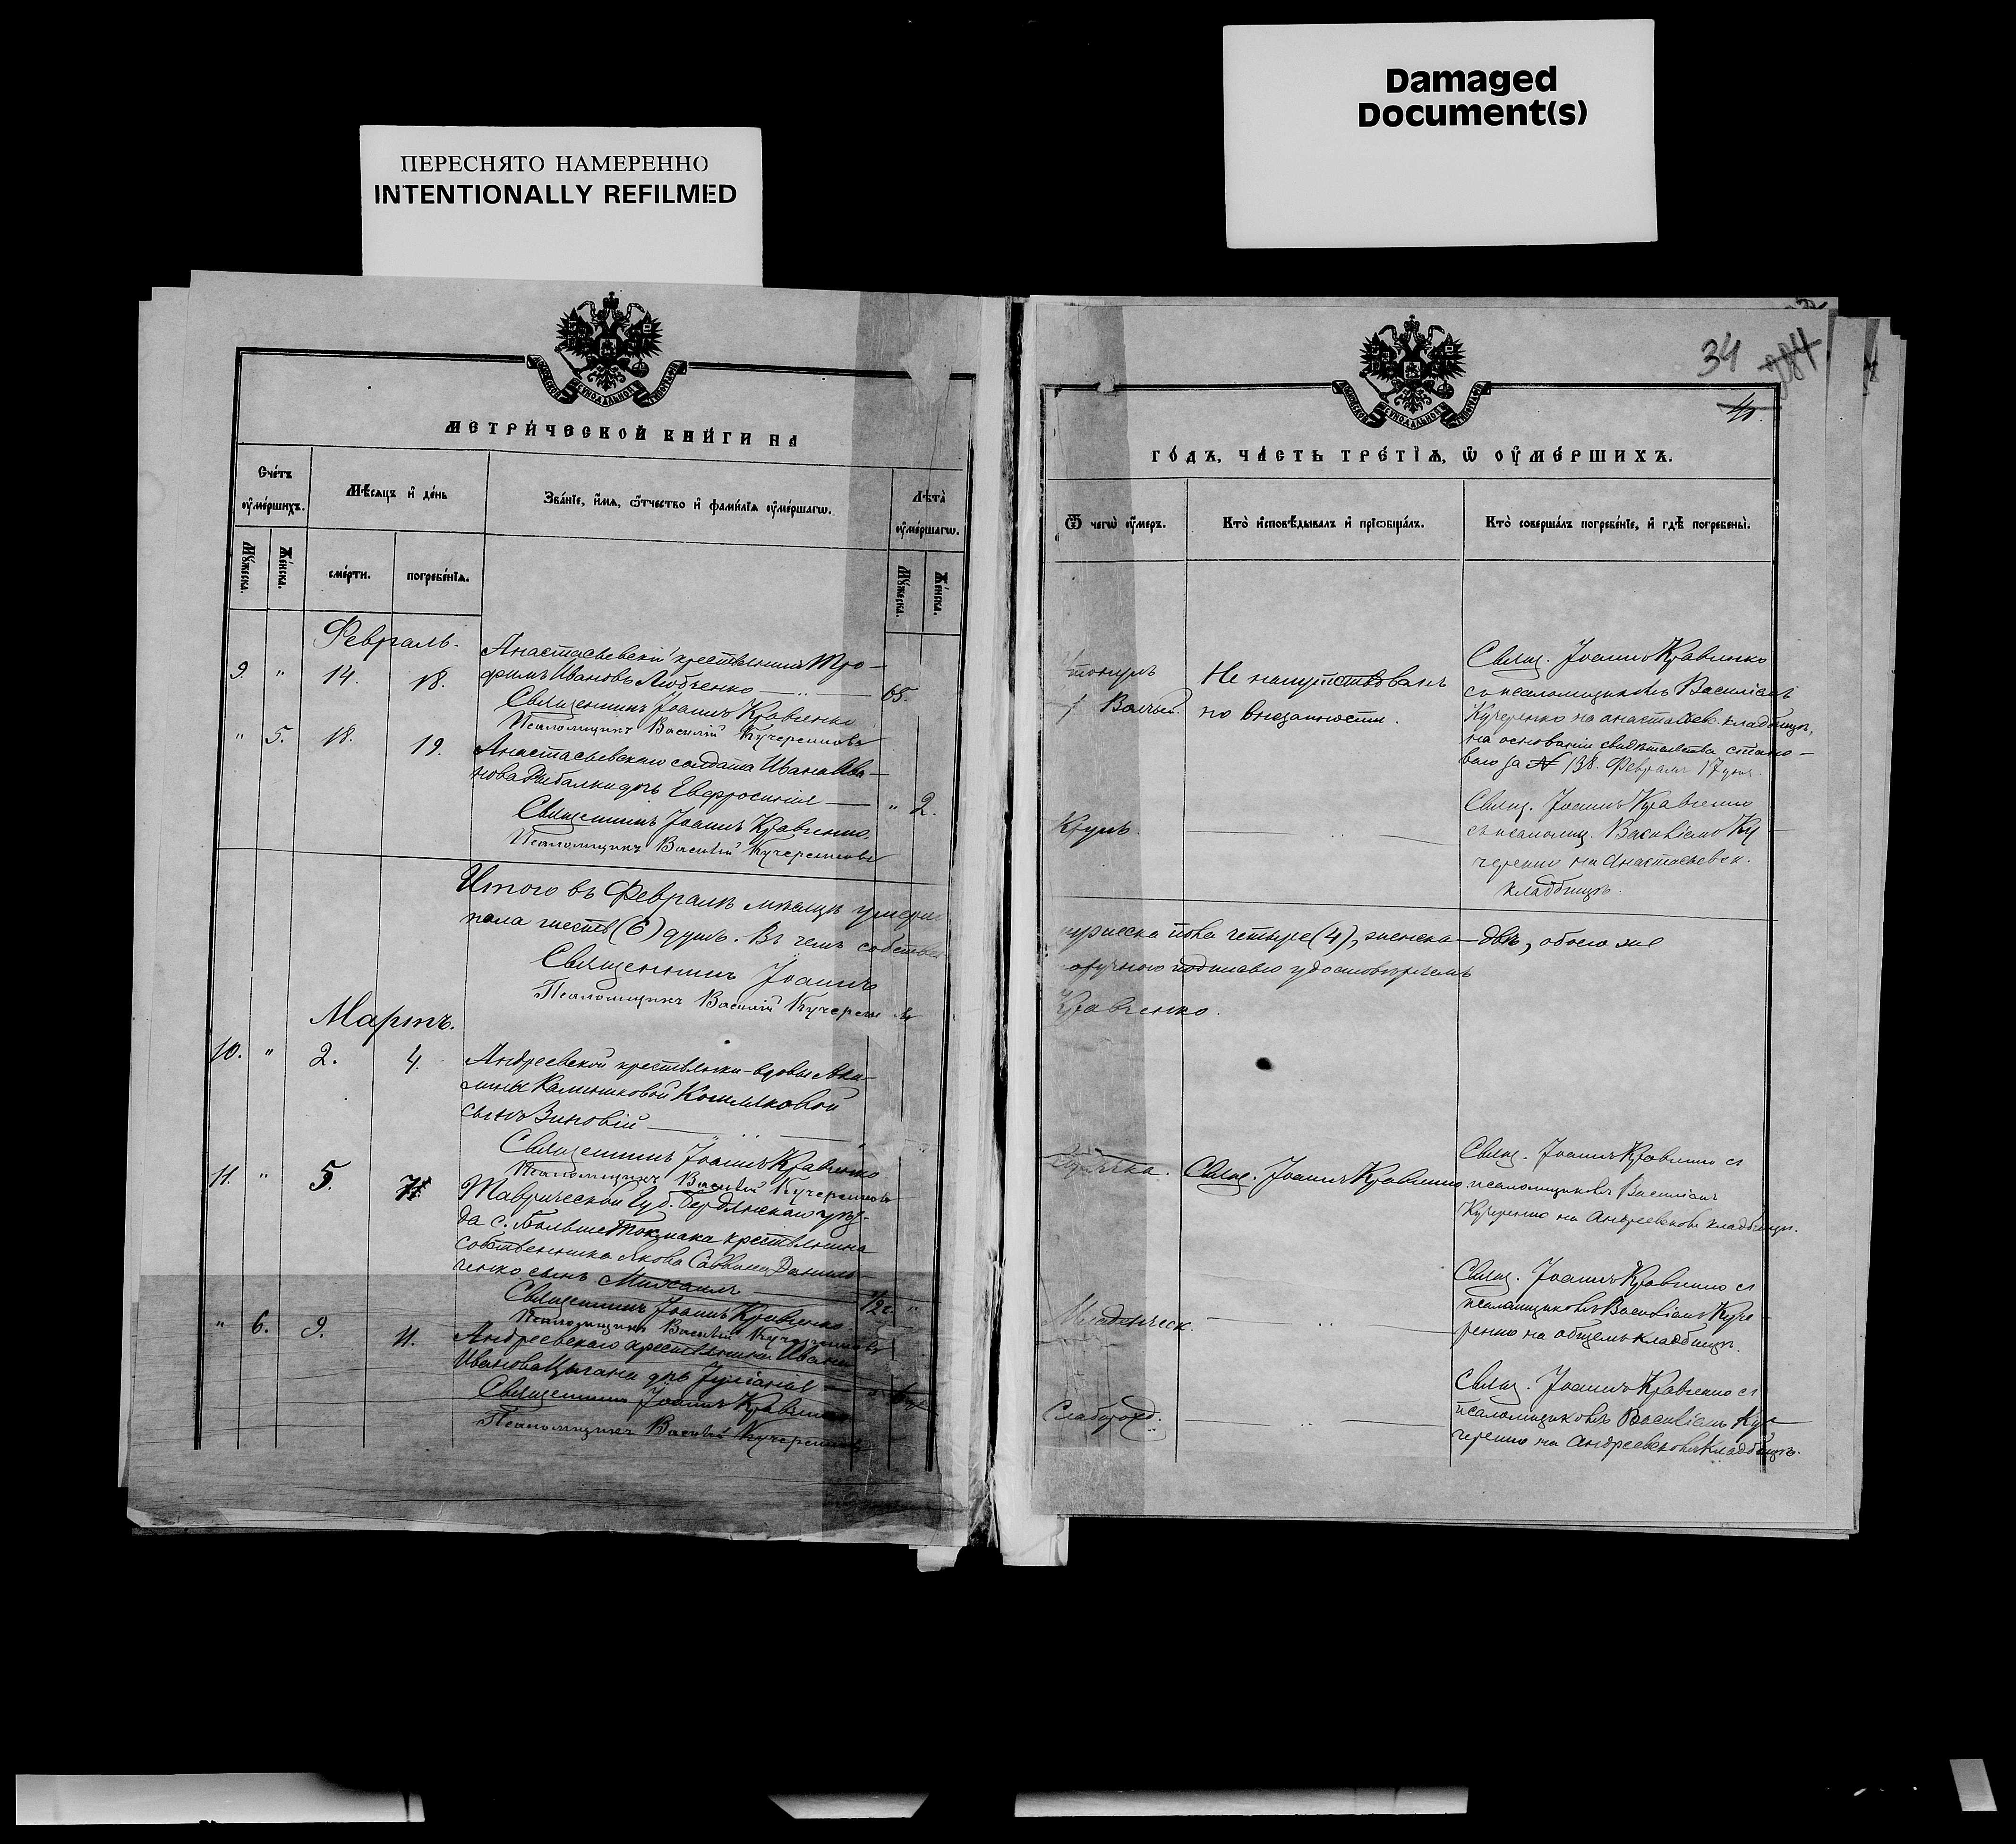 ПЕРЕСНЯТО НАМЕРЕННО
INTENTIONALLY REFILMED
Damaged
Document(s)
МЕТРИЧЕСКОЙ КНИГИ НА
Счетъ
оумершихъ.
Мѣсяцъ и день
Званіе, имя, ѿтчество и фамилія оумершагѡ.
Лѣта
оумершагѡ.
Мужеска.
Женска.
смерти.
погребенія.
Мужеска.
Женска.
Февраль.
9. " 14. 18. Анастасьевскій крестьянинъ Тро-
фимъ Ивановъ Любченко — 65.
Священникъ Іоаннъ Кравченко
Псаломщикъ Василій Кучеренковъ
" 5. 18. 19. Анастасьевскаго солдата Ивана Ива-
нова Рибалки дочь Евфросинія — " 2.
Священникъ Іоаннъ Кравченко
Псаломщикъ Василій Кучеренковъ
Итого въ Февралѣ мѣсяцѣ
пола шесть (6) душъ. Въ чемъ
Священникъ Іоаннъ
Псаломщикъ Василій
Мартъ.
10. " 2. 4. Андреевской крестьянки-вдовы Аки-
лины
сынъ Зиновій —
Священникъ Іоаннъ Кравченко
Псаломщикъ Василій Кучеренковъ
11. " 5. 7 Таврической Губ. Бердянскаго уѣз-
да с. Больше Токмака крестьянина
собственника Якова Саввина Даниль-
ченко сынъ Михаилъ — 1/2 г. "
Священникъ Іоаннъ Кравченко
Псаломщикъ Василій Кучеренковъ
" 6. 9. 11. Андреевскаго крестьянина Ивана
Иванова Цыгана дочь Іуліанія —
Священникъ Іоаннъ Кравченко
Псаломщикъ Василій Кучеренковъ
34 284
ГОДЪ, ЧАСТЬ ТРЕТІЯ, Ѡ ОУМЕРШИХЪ.
Ѿ чегѡ оумеръ.
Кто исповѣдывалъ и пріѡбщалъ.
Кто совершалъ погребеніе, и гдѣ погребены.
Не напутствованъ
по внезапности.
Свящ. Іоаннъ Кравченко
съ псаломщикомъ Василіемъ
Кучеренко на анастасьев. кладбищѣ,
на основаніи свидѣтельства стано-
ваго за № 138. Февраля 17 дня.
Крупъ.
Свящ. Іоаннъ Кравченко
съ псаломщ. Василіемъ Ку-
черенко на Анастасьевск.
кладбищѣ.
мужеска пола четыре (4), женска — двѣ, обоего же
подписью удостовѣряемъ
Кравченко.
Свящ. Іоаннъ Кравченко
Свящ. Іоаннъ Кравченко съ
псаломщикомъ Василіемъ
Кучеренко на Андреевскомъ кладбищѣ.
Младенческ.
Свящ. Іоаннъ Кравченко съ
псаломщикомъ Василіемъ Куче-
ренко на общемъ кладбищѣ.
Слаборожд.
Свящ. Іоаннъ Кравченко съ
псаломщикомъ Василіемъ Ку-
черенко на Андреевскомъ кладбищѣ.